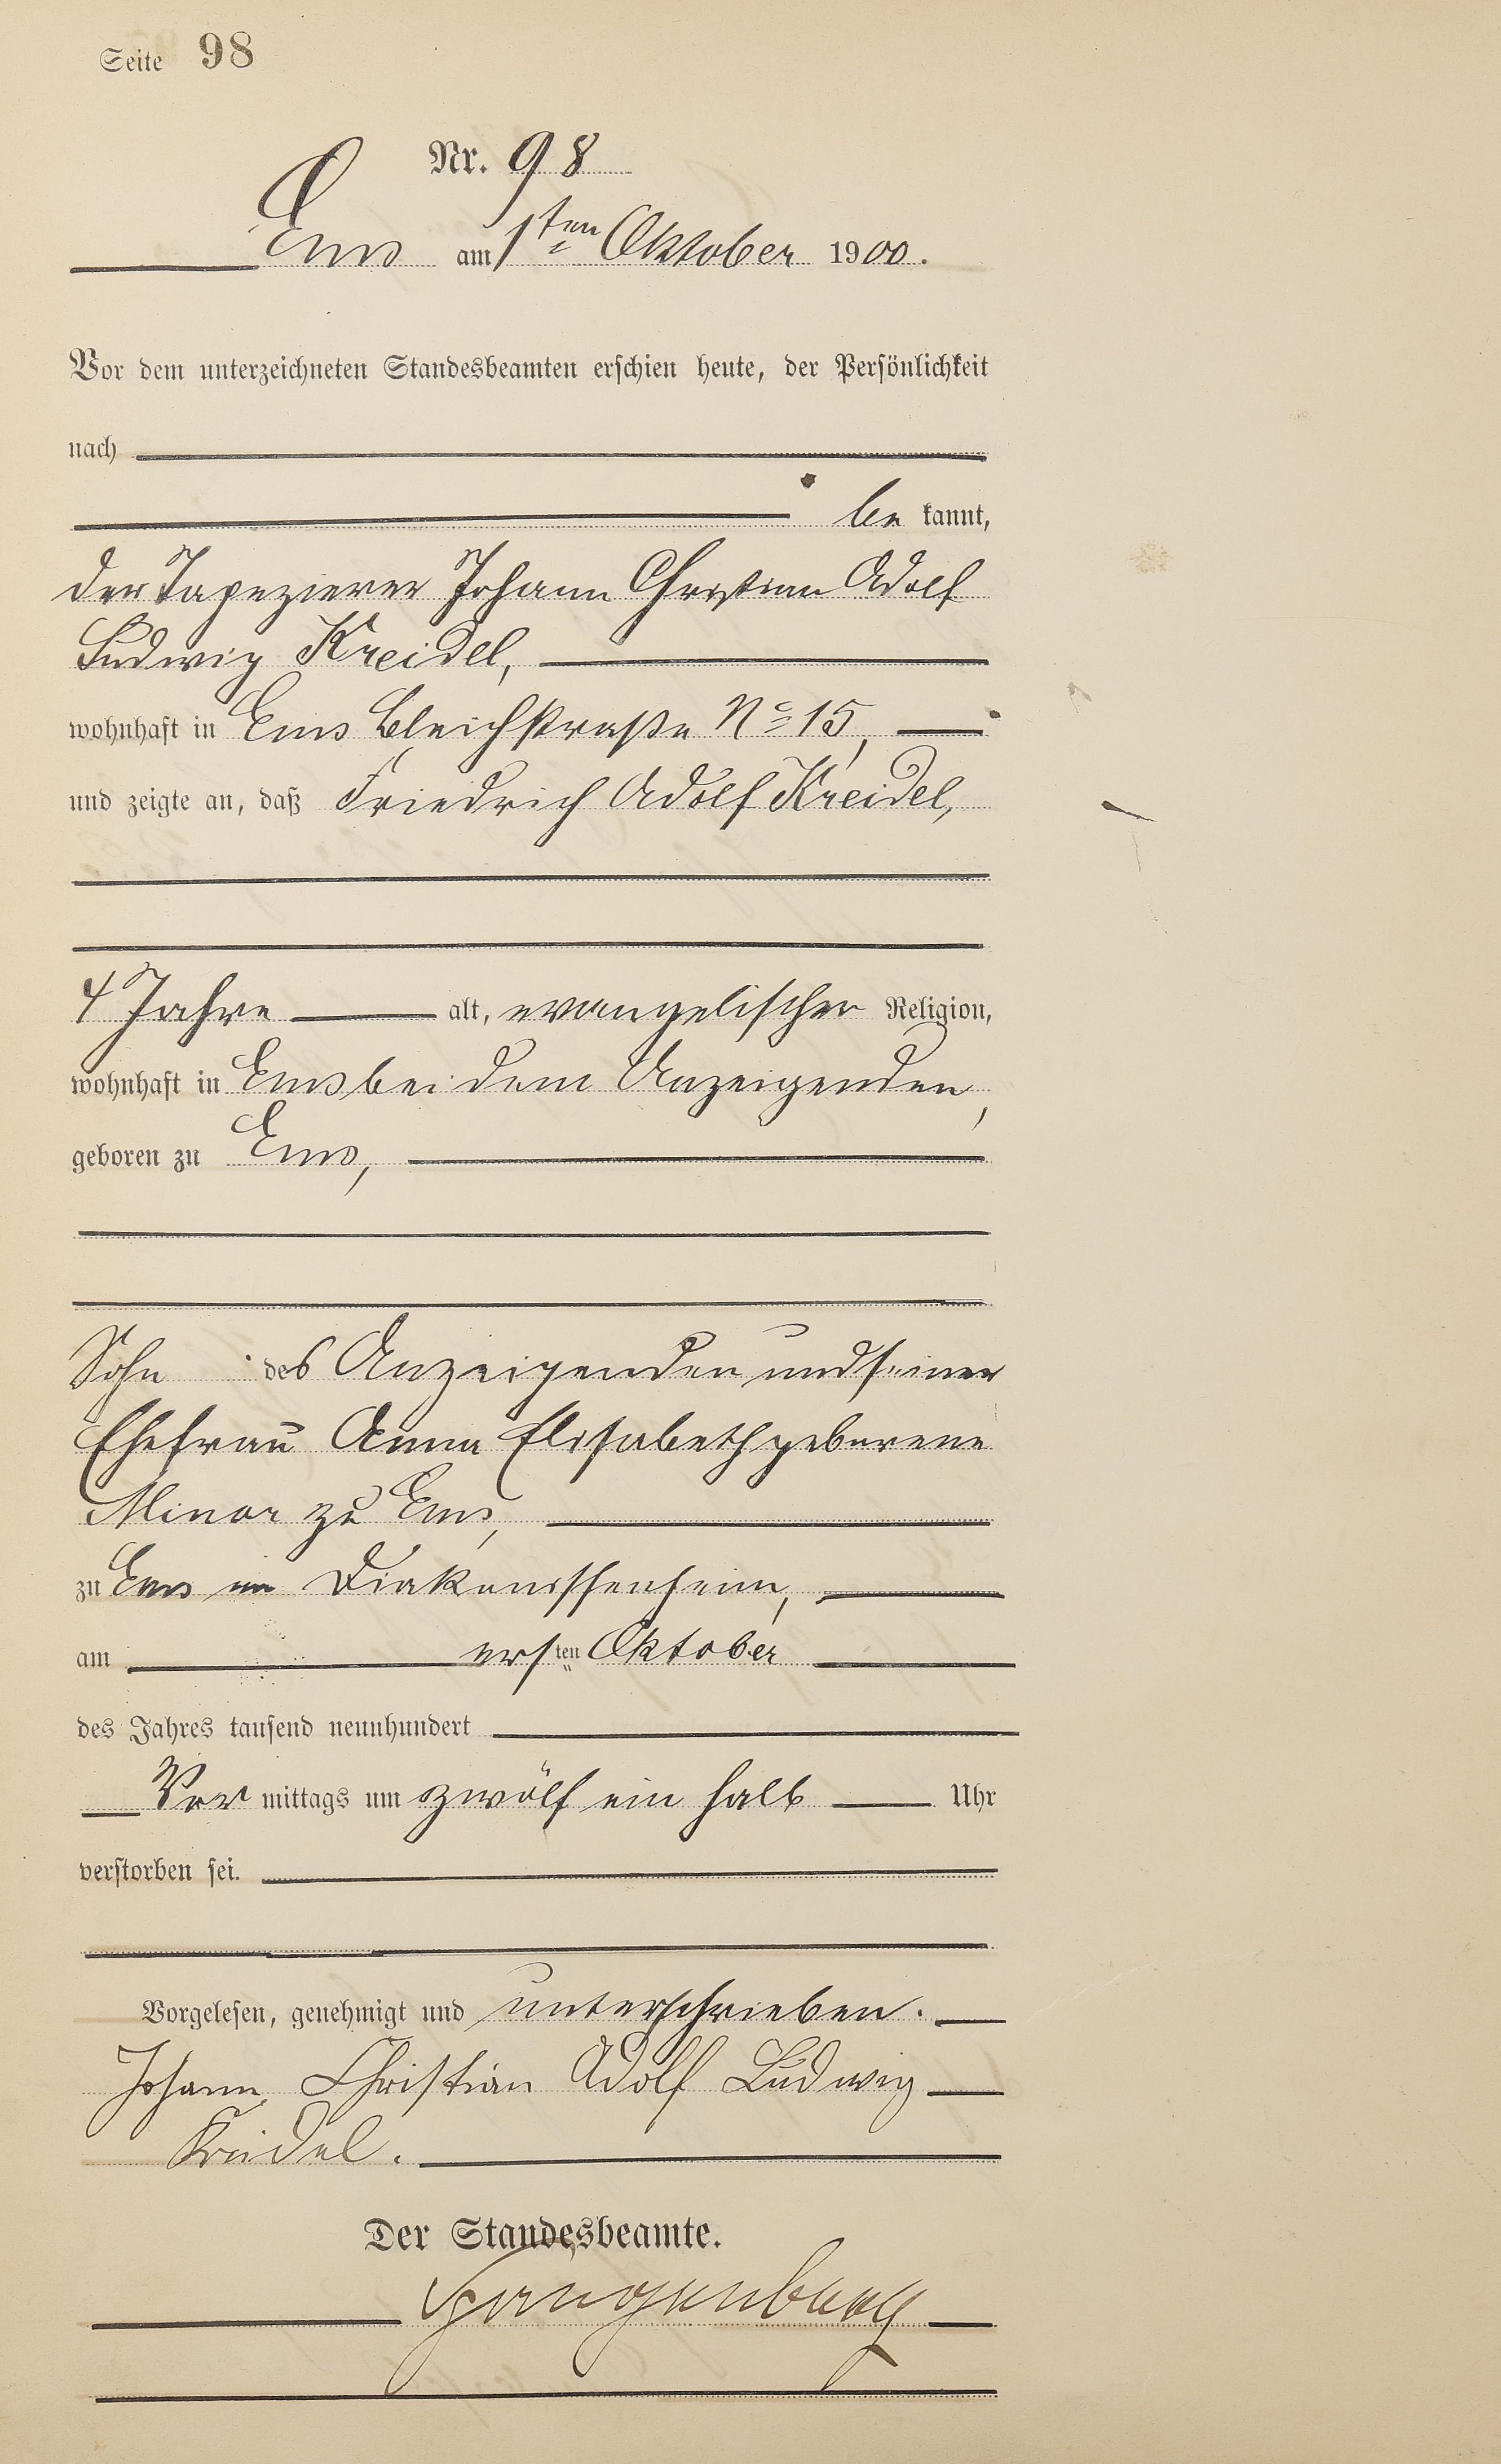 Seite 98
Nr. 98
Ems am 1ten Oktober 1900.
Vor dem unterzeichneten Standesbeamten erschien heute, der Persönlichkeit
nach
be kannt,
der Tapezierer Johann Christian Adolf
Ludwig Kreidel,
wohnhaft in Ems Bleichstraße No 15,
und zeigte an, daß Friedrich Adolf Kreidel,
4 Jahre alt, evangelischer Religion,
wohnhaft in Ems bei dem Anzeigenden,
geboren zu Ems,
Sohn des Anzeigenden und seiner
Ehefrau Anna Elisabeth geborene
Minor zu Ems,
zu Ems im Diakonissenheim,
am ersten Oktober
des Jahres tausend neunhundert
Vor mittags um zwölf ein halb Uhr
verstorben sei.
Vorgelesen, genehmigt und unterschrieben.
Johann Christian Adolf Ludwig
Kreidel.
Der Standesbeamte.